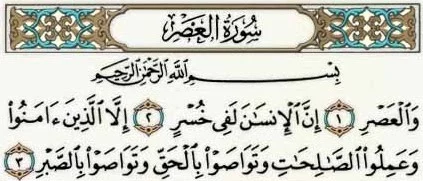 سُورَةُ العَصْرِ
بِسْمِ اللَّهِ الرَّحْمَٰنِ الرَّحِيمِ
وَالْعَصْرِ ١ إِنَّ الْإِنسَانَ لَفِي خُسْرٍ ٢ إِلَّا الَّذِينَ ءَامَنُوا
وَعَمِلُوا الصَّالِحَاتِ وَتَوَاصَوْا بِالْحَقِّ وَتَوَاصَوْا بِالصَّبْرِ ٣